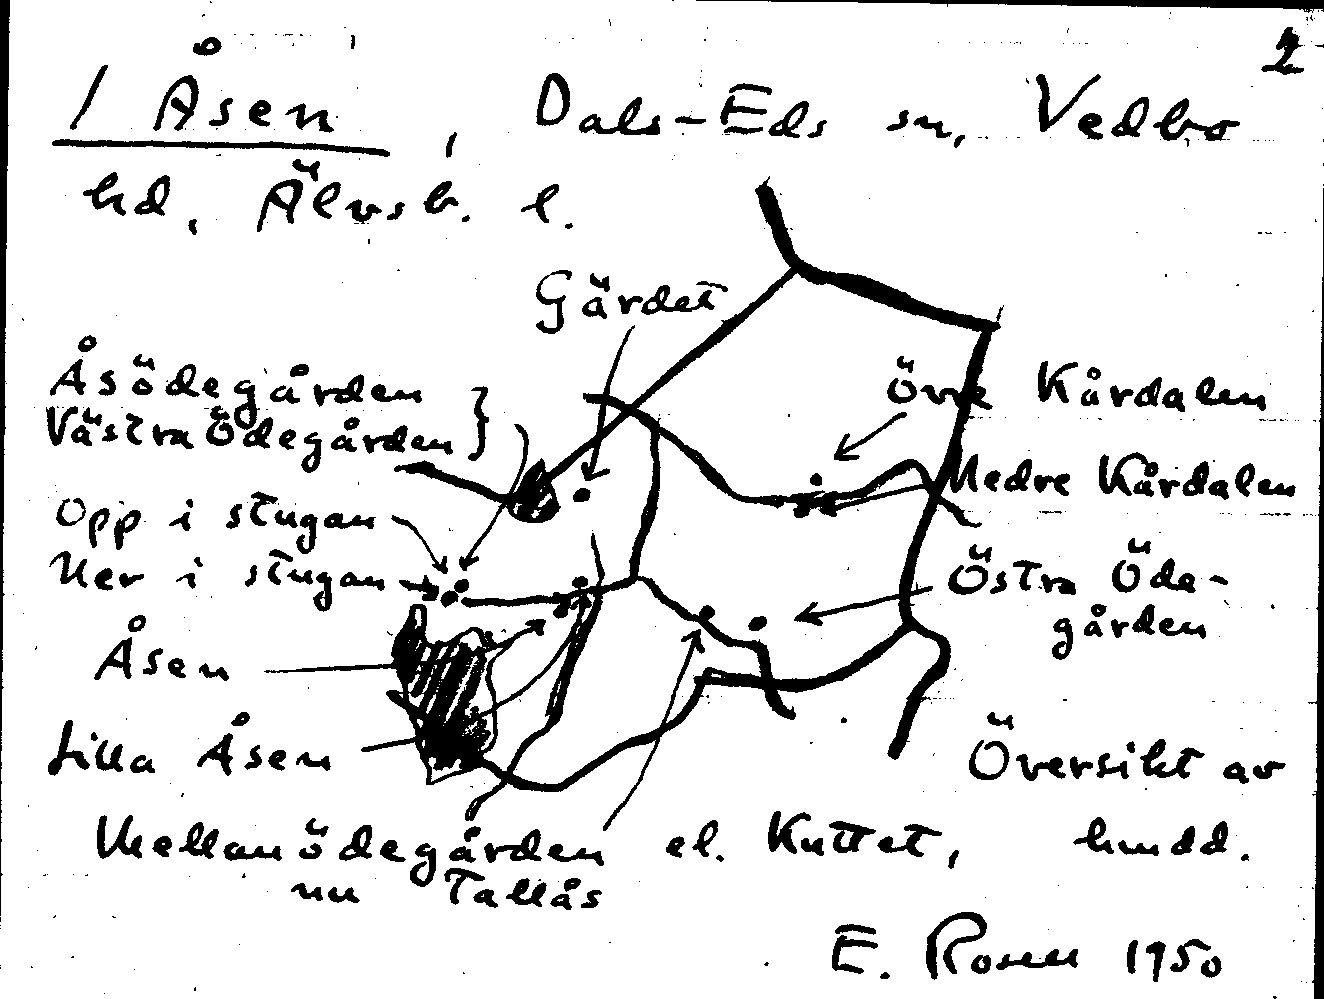 2
/ Åsen, Dals-Eds sn, Vedbo
hd, Älvsb. l.
Gärdet
Åsödegården
Västra Ödegården }
Övre Kårdalen
Nedre Kårdalen
Opp i stugan
Ner i stugan
Östra Öde-
gården
Åsen
Lilla Åsen
Översikt av
Mellanödegården el. Kuttet, hmdd.
nu Tallås
E. Rosen 1950